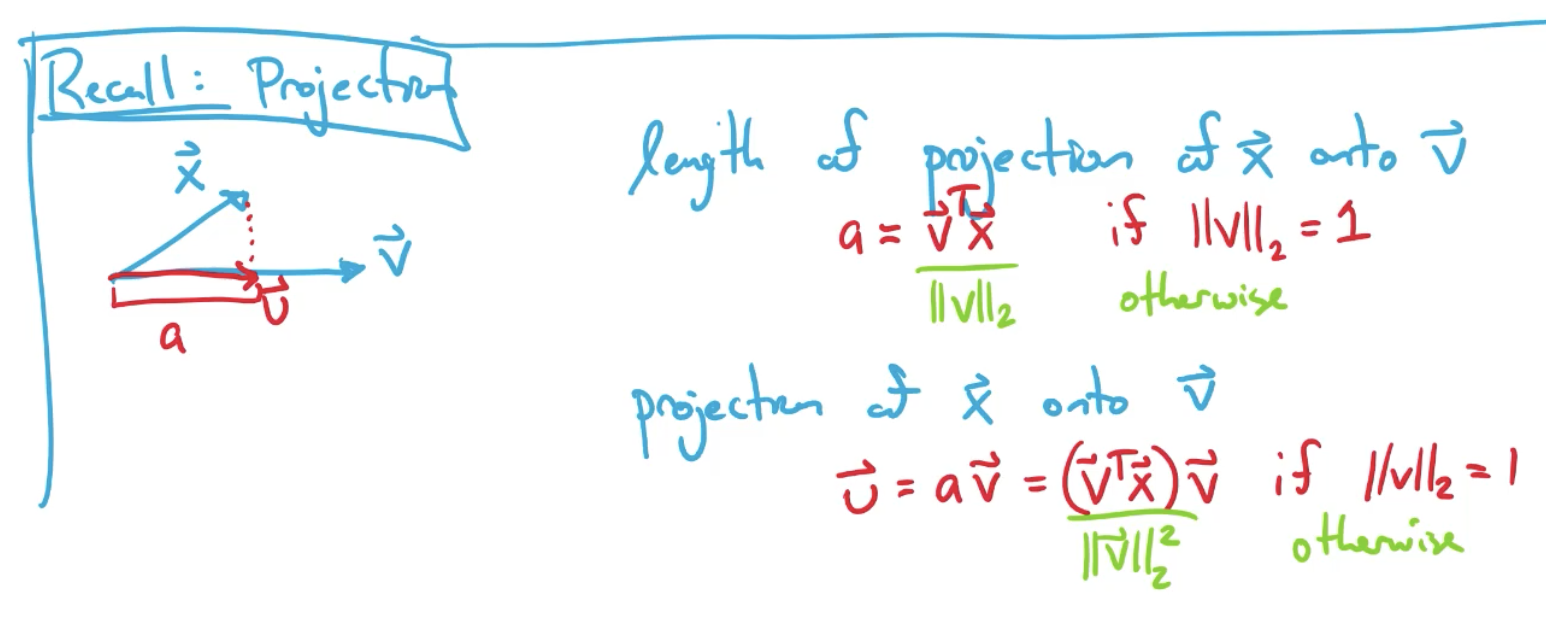 Recall: Projection
length of projection of x⃗ onto v⃗
a = v⃗ᵀx⃗ if ||v||₂ = 1
||v||₂ otherwise
x⃗
v⃗
u⃗
a
projection of x⃗ onto v⃗
u⃗ = a v⃗ = (v⃗ᵀx⃗) v⃗ if ||v||₂ = 1
||v⃗||₂² otherwise